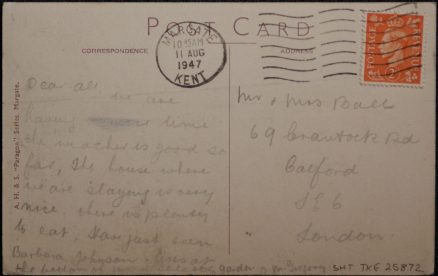 POST CARD
CORRESPONDENCE
ADDRESS
MARGATE
10 AM
11 AUG
1947
KENT
POSTAGE
A. H. & S. "Paragon" Series, Margate.
Dear all, we are
having time
the weather is good so
far, The house where
we are staying is very
nice, there is plenty
to eat, Have just seen
Barbara Johnson
the bottom of garden
Mr & Mrs Ball
69 Crantock Rd
Catford
S E 6
London
SHT TKE 25872